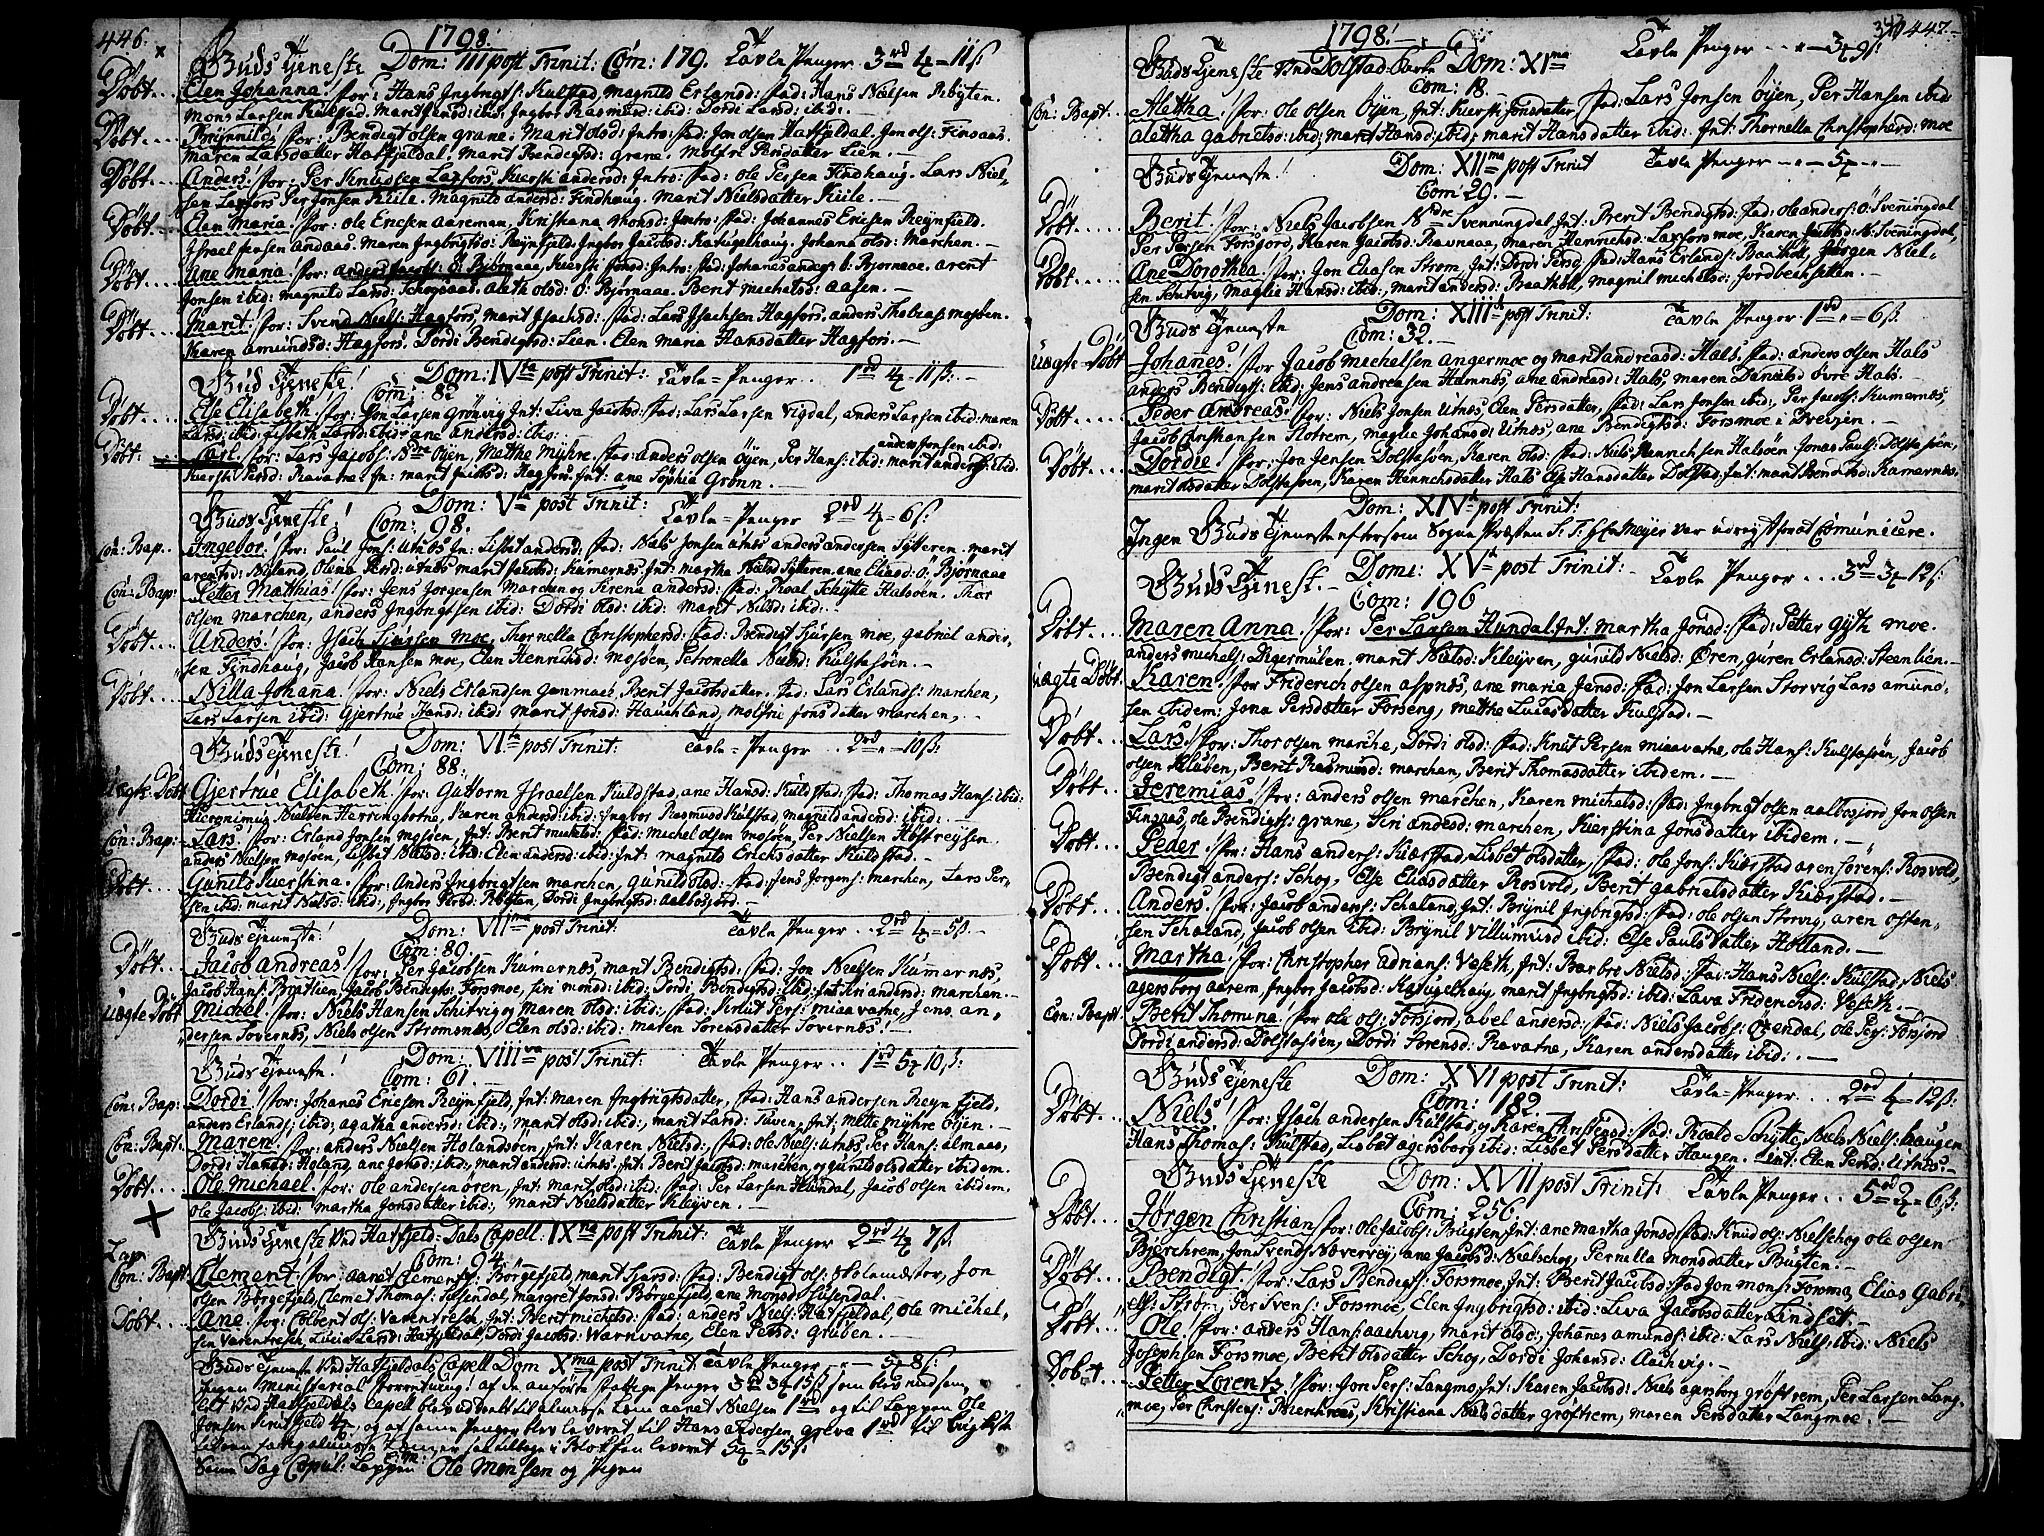 446.
1798.
Guds Tjeneste Dom: III post Trinit: Com: 179. Tavle Penger 3 rd 4 - 11 ß
Døbt Elen Johanna. for: Hans Ingbrigts: Kulstad, Magnild Erlansd: fad: Hans Nielsen Rbyten.
Mons Larsen Kulstad. Marit Jensd: ibid: Ingbor Rasmusd: ibid: Dordi Larsd: ibid.
Døbt Brynnild. for: Bendigt olsen grane. Marit olsd: Intro: fad: Jon olsen Hatfjeldal. Jon ols: Finsaas.
Maren Larsdatter Hatfjeldal. Marit Bendigtsd: grane. Molfri Persdatter Lien.
Døbt Anders. for: Per Knudsen Laxfors, Kierst: andersd: Intro: fad: ole Persen Findhaug. Lars Niel-
sen Laxfors Per Jonsen Kiile. Magnild andersd: Findhaug. Marit Nielsdatter Kiile.
Døbt Elen Maria. for: ole Ericsen aareman. Kristiana Monsd: Intro: fad: Johannes Ericsen Reynfjeld.
Israel Jensen andaas. Maren Ingbrigtsd: Reynfjeld Ingbor Jacobsd: Katugelhaug. Johana olsd: Marchen.
Døbt Ane Maria. for: anders Jacobs: Ø: Biørnaae, Kierst: Jonsd: Intro: fad: Johanes anders: b: Biornaae. arent
Jonsen ibid: magnild Larsd: Schogsaas. aleth olsd: o: Biornaae. Berit michelsd: aasen.
Døbt Marit. for: Svend Niels: Hagfors, marit Isachsd: fad: Lars Isachsen Hagfors. anders Thobias: mosøen.
Karen amundsd: Hagfors. Dordi Bendigtsd: Lien. Elen maria Hansdatter Hagfors.
Guds Tjeneste! Dom: IV post Trinit: Tavle-Penger 1 rd 4 11 ß
Com: 82
Døbt Else Elisabeth. for: Jon Larsen Grønvig Int: Liva Jacobsd: fad: Lars Larsen vigdal, anders Larsen ibid: maren
Larsd: ibid: Lisbeth Larsd: ibid: ane andersd: ibid:
Døbt Carl. for: Lars Jacobs: N øyen, Mette Myhre. fad: anders olsen øyen, Per Hans: ibid: marit anders: ibid: anders Jonsen ibid:
Kierst: Persd: Ravatne. In: marit Jacobsd: Hagfors. Int: ane Sophia Grønn.
Guds Tjeneste! Dom: V post Trinit: Tavle-Penger 2 rd 4 - 6 ß
Com: 98.
Con: Bap. Ingebor. for: Paul Jons: utnæs In: Lisbet andersd: fad: Niels Jonsen utnæs anders andersen Sytteren. marit
arentsd: Nyland, olena Persd: utnæs marit Jacobsd: Kumernæs. Int: martha Nielsd Sytteren. ane Eliasd: Ø Bjornaae
Con: Bap: Petter Matthias. for: Jens Jorgensen Marchen og Sirena andersd: fad: Roal Schytte Halsøen. Thor
olsen marchen, anders Ingbrigtsen ibid: Dordi olsd: ibid: marit Nilsd: ibid:
Døbt Anders. for: Isach Siursen moe, Thornella Christophersd: fad: Bendigt Siursen moe, gabriel ander-
sen Findhaug, Jacob Hansen moe, Elen Henrichsd: mosøen, Petronella Nielsd: Kulstasøen.
Døbt Nilla Johana. for: Niels Erlandsen granmaei, Berit Jacobsdatter. fad: Lars Erlands: marchen,
Lars Larsen ibid: Gjertrue Hansd: ibid: marit Jonsd: Hauchland, molfrie Jonsdatter marchen.
Guds Tjeneste! Dom: VI post Trinit: Tavle-Penger 2 rd - 10 ß:
Com: 88.
uægte Døbt Gjertrue Elisabeth. for: Guttorm Israelsen Kuldstad, ane Hansd: Kuldstad: fad: Thomas Hans: ibid:
Hieronimus Nielsen Herringbotne, Karen andersd: ibid: Ingbor Rasmusd Kulstad, magnild andersd: ibid:
Con: Bap: Lars. for: Erland Jonsen mosøen, Int: Berit michelsd: fad: michel olsen mosøen, Per Nielsen Holstreysen.
anders Nielsen mosøen, Lisbet Nielsd: ibid: Elen andersd: ibid: Int: magnild Ericksdatter Kuldstad.
Døbt Gunild Kierstina. for: Anders Ingbrigtsen marchen, gunild olsd: fad: Jens Jorgens: marchen, Lars Per-
sen ibid: marit Nielsd: ibid: Ingbor Persd: Rbyten, Dordi Ingbrigtsd: aalbosjord.
Guds Tjeneste! Dom: VII post Trinit: Tavle Penger 2 rd 4 - 5 ß
Com: 89.
Døbt Jacob andreas. for: Per Jacobsen Kumernæs, marit Bendigtsd: fad: Jon Nielsen Kumernæs,
Jacob Hans: Bratlien, Jacob Bendigts: Forsmoe, Siri monsd: ibid: Dordi Bendigtsd: ibid: Int: Siri andersd: marchen.
uægte Døbt Michel. for: Niels Hansen Schitvig og Maren olsd: ibid: fad: Knut Pers: miaavatne, Jens an-
dersen Tovernæs, Niels olsen Strømsnæs, Elen olsd: ibid: maren Sorensdatter Tovernæs.
Guds Tjeneste! Dom: VIII post Trinit: Tavle Penger 1 rd 5 10 ß:
Com: 61.
Con: Bap: Dordi. for: Johanes Ericsen Reynfjeld, Int: maren Ingbrigtsdatter, fad: Hans andersen Reynfjeld,
anders Erlands: ibid; agatha andersd: ibid:, marit olsd: ibid:, marit Larsd: Tuven, Int: Mette myhre øyen.
Con: Bapt: Maren. for: anders Nielsen Holandsøen, Int: Karen Nielsd: fad: ole Niels: utnæs, Per Hans: almaas,
Dordi Hansd: Holand, ane Johsd: ibid:, marit andersd: utnæs. Int: Berit Jacobsd: marchen, og gunild olsdatter ibidem.
Døbt Ole Michael. for: ole andersen øren, Int: marit olsd: ibid: fad: Per Larsen Hundal, Jacob olsen ibidem.
ole Jacobs: ibid: martha Jonsdatter ibid:, Marit Nielsdatter Kleyven.
Guds Tjeneste ved Hatfjeld-Dals Capell. IX post Trinit: Tavle Penger 2 rd 4 7 ß.
Com: 94
Lap Con: Bapt Clement. for: aanet Clements: Børgefjeld, marit Sjursd: fad: Bendigt ols: Skolemester, Jon
olsen Børgefjeld, Clemet Thomas: Susendal, margret Jonsd: Børgefjeld, ane monsd Susendal.
Døbt Ane. for: Colbent ols: Varentresk, Int: Berit michelsd: fad: anders Niels: Hatfjeldal, ole michel-
sen Varentresk, Lucia Larsd: Hatfjeldal, Dordi Jacobsd: Warnvatne, Elen Petersd: gruben.
Guds Tjeneste ved Hatfjeldals Capell Dom X post Trinit: Tavle Penger 5 - 8 ß:
Ingen Ministerial Forretning! af de anførte fattige Penger 3 rd 3 15 ß som blev indsam-
let ved Hatfjeldals Capell blev udmelt til almisse Lem anet Nielsen 1 rd og til Lappen Ole
Jonsen Krutfjeld 4, og af samme Penger blev leveret til Hans andersen greva 1 rd til
Sam Dag Copul: Lappen Ole Monsen og Pigen
347 447.
1798.
Guds Tjeneste ved Dolstad Kirke Dom: XI Tavle Penger 3 9 ß
Com: 18.
Con: Bapt. Aletha. for: ole olsen Øyen, Int: Kierst: Jonsdatter, fad: Lars Jonsen øyen, Per Hansen ibid:
aletha gabrielsd: ibid; marit Hansd: ibid; marit Hansdatter ibid: Int: Thornella Christophersd: moe
Guds Tjeneste! Dom: XII post Trinit Tavle Penger 5
Com: 29.
Døbt Berit. for: Niels Jacobsen N Svenningdal Int: Berit Bendigtsd: fad: ole anders: Ø: Sveningdal
Per Persen Forsjord, Karen Jacobsd: Ravnaae, maren Henrichsd: Laxforsmoe, Karen Jacobsd: N: Sveningdal,
Døbt Ane Dorothea. for: Jon Eliasen Strøm, Int: Dordi Persd: fad: Hans Erlands: Baathol, Jørgen Niel-
sen Schitvig, Maglie Hansd: ibid:, marit andersd: Baathol, magnil michelsd: Jordbechselen.
Guds Tjeneste Dom: XIII post Trinit: Tavle Penger 1 rd - 6 ß.
Com: 32.
uægte Døbt Johanes. for Jacob Michelsen Angermoe og marit andreasd: Hals, fad: anders olsen Hals
anders Bendigts: ibid: Jens andreasen Hamnæs, ane andreasd: Hals, maren Danielsd øvre Hals.
Døbt Peder Andreas. for: Niels Jonsen utnæs, Elen Persdatter, fad: Lars Jonsen ibid:, Per Jacobs: Kumernæs,
Jacob Christiansen Flotrem, maglie Johansd: utnæs, ane Bendigtsd: Forsmoe i Drevjen.
Døbt Dordie. for: Jon Jensen Dolstasøen, Karen olsd: fad: Niels Henrichsen Halsøen Jonas Pauls: Dolstasøen,
marit olsdatter Dolstasøen, Karen Henrichsdatter Hals Else Hansdatter Dolstad. Int: marit Bendtsd: Ramernæs.
Dom: XIV post Trinit:
Ingen Guds Tjeneste eftersom Sogne Præsten S. T. Hr Meyer var udreyst for at Comunicere.
Guds Tjeneste. Dom: XV post Trinit: Tavle Penger 3 rd 3 12 ß:
Com: 196
Døbt Maren Anna. for: Per Larsen Hundal. Int: martha Jonsd: fad: Petter Gyth moe.
anders michels: Digermulen. marit Nielsd: Kleyven, gunild Nielsd: Øren, guren Erlansd: Steenlien.
uægte Døbt. Karen. for Friderich olsen aspnæs, ane maria Jensd: fad: Jon Larsen Storvig Lars amund-
sen ibidem: Jona Persdatter Forseng, mette Lucasdatter Kulstad.
Døbt Lars. for: Thor olsen marche, Dordi olsd: fad: Knut Persen miaavatne, ole Hans: Kulstasøen, Jacob
olsen Kluben, Berit Rasmusd: marchen, Berit Thomasdatter ibidem.
Døbt Jeremias. for: anders olsen marchen, Karen michelsd: fad: Ingbrigt olsen aalbosjord Jon olsen
Finsaas, ole Bendigts: grane, Siri andersd: marchen, Kierstina Jonsdatter ibidem.
Døbt Peder. for: Hans anders: Kiærstad, Lisbet olsdatter, fad: ole Jons: Kiærstad aren Sørens: Rosvold,
Bendigt anders: Schog, Else Eliasdatter Rosvold, Berit gabrielsdatter Kiærstad.
Døbt Anders. for: Jacob anders: Schaland, Int: Brynil Ingbrigtsd: fad: ole olsen Storvig, aren osten-
sen Schaland, Jacob olsen ibid: Brynil Villumsd ibid: Else Pauls Datter Holland.
Døbt Martha. for: Christopher adrians: Veseth, Int: Barbro Nielsd: fad: Hans Niels: Kulstad, Niels
agersborg aarem, Ingbor Jacobsd: Katugelhaug, marit Ingbrigtsd: ibid: Lava Friderichsd: Veseth.
Con: Bapt Berit Thomina. for ole ols: Forsjord, abel andersd: fad: Niels Jacobs: Øxendal, ole Pers: Forsjord
Dordi andersd: Dolstasøen, Dordi Sorensd: Ravatne, Karen andersdatter ibid:
Guds Tjeneste Dom: XVI post Trinit: Tavle-Penger 2 rd 4 - 12 ß:
Com: 182
Døbt Niels. for: Isach andersen Kulstad og Karen Andersd: fad: Roald Schytte, Niels Niels: haugen
Hans Thomas: Kulstad, Lisbet agersborg ibid: Lisbet Persdatter Haugen. Int: Elen Persd: utnæs.
Guds Tjeneste Dom: XVII post Trinit: Tavle Penger 5 rd 2 - 6 ß:
Com: 256.
Døbt Jørgen Christian for: ole Jacobs: Bugten, Int: ane martha Jonsd: fad: Knud ols: Nielschog ole olsen
Bjerchrem, Jon Svends: Nøvervej, ane Jacobsd: Nielschog, Pernella Monsdatter Bugten.
Døbt Bendigt. for: Lars Bendigts: Forsmoe, Int: Berit Jacobsd: fad Jon mons: Formo, Elias gabri-
els: Strøm, Per Svens: Forsmoe, Elen Ingbrigtsd: ibid: Liva Jacobsdatter Lindset.
Døbt Ole. for: anders Hans: aachvig, marit olsd:, Johanes amunds: ibid: Lars Niels: ibid: Niels
Josephsen Forsmoe, Berit olsdatter Schog, Dordi Johansd: Aachvig.
Døbt Petter Lorentz. for: Jon Pers: Langmo, Int: Karen Jacobsd: Niels agersborg grøftrem, Per Larsen Lang-
moe, Per Christens: Mierknæs, Kristiana Nielsdatter grøftrem, maren Persdatter Langmoe.